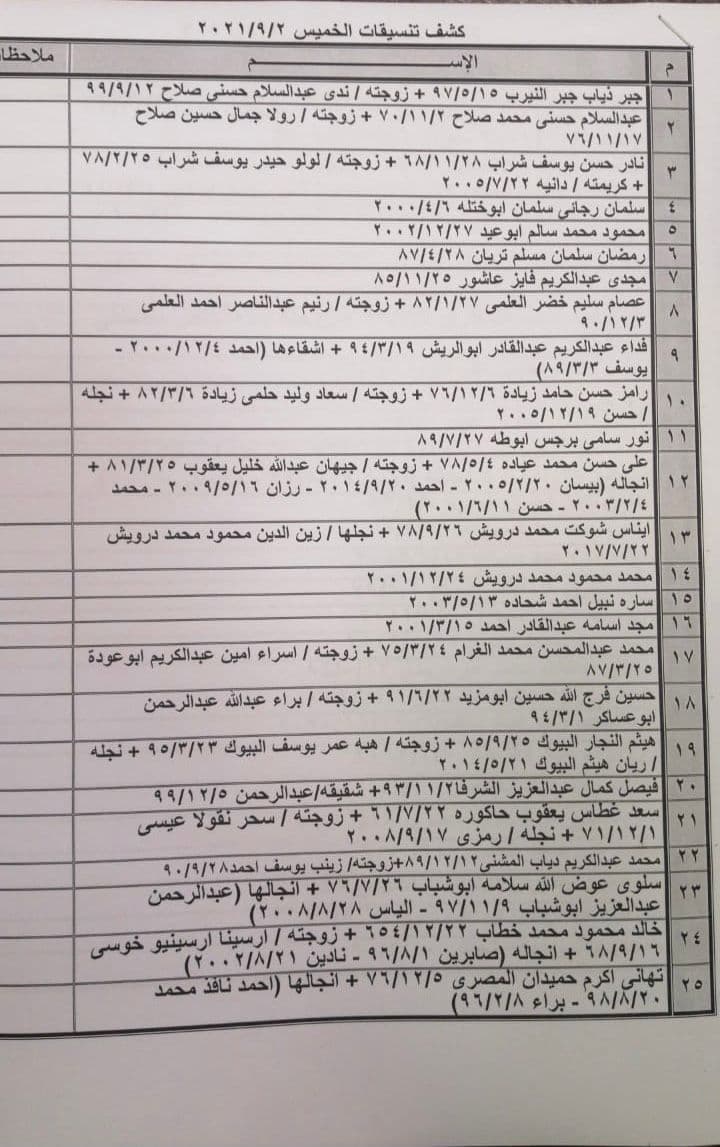 كشف تنسيقات الخميس ٢٠٢١/٩/٢
م الإســـــــــم ملاحظات
١ جبر ذياب جبر النيرب ٩٧/٥/١٥ + زوجته / ندى عبدالسلام حسنى صلاح ٩٩/٩/١٢
٢ عبدالسلام حسنى محمد صلاح ٧٠/١١/٢ + زوجته / رولا جمال حسين صلاح
٧٦/١١/١٧
٣ نادر حسن يوسف شراب ٦٨/١١/٢٨ + زوجته / لولو حيدر يوسف شراب ٧٨/٢/٢٥
+ كريمته / دانيه ٢٠٠٥/٧/٢٢
٤ سلمان رجائي سلمان ابوختله ٢٠٠٠/٤/٦
٥ محمود محمد سالم ابوعيد ٢٠٠٢/١٢/٢٧
٦ رمضان سلمان مسلم تربان ٨٧/٤/٢٨
٧ مجدى عبدالكريم فايز عاشور ٨٥/١١/٢٥
٨ عصام سليم خضر العلمى ٨٢/١/٢٧ + زوجته / رنيم عبدالناصر احمد العلمى
٩٠/١٢/٣
٩ فداء عبدالكريم عبدالقادر ابوالريش ٩٤/٣/١٩ + اشقاءها (احمد ٢٠٠٠/١٢/٤ -
يوسف ٨٩/٣/٣)
١٠ رامز حسن حامد زيادة ٧٦/١٢/٦ + زوجته / سعاد وليد حلمى زيادة ٨٢/٣/٦ + نجله
/ حسن ٢٠٠٥/١٢/١٩
١١ نور سامى برجس ابوطه ٨٩/٧/٢٧
١٢ على حسن محمد عياده ٧٨/٥/٤ + زوجته / جيهان عبدالله خليل يعقوب ٨١/٣/٢٥ +
انجاله (بيسان ٢٠٠٥/٢/٢٠ - احمد ٢٠١٤/٩/٢٠ - رزان ٢٠٠٩/٥/١٦ - محمد
٢٠٠٣/٢/٤ - حسن ٢٠٠١/٦/١١)
١٣ ايناس شوكت محمد درويش ٧٨/٩/٢٦ + نجلها / زين الدين محمود محمد درويش
٢٠١٧/٧/٢٢
١٤ محمد محمود محمد درويش ٢٠٠١/١٢/٢٤
١٥ ساره نبيل احمد شحاده ٢٠٠٣/٥/١٣
١٦ مجد اسامه عبدالقادر احمد ٢٠٠١/٣/١٥
١٧ محمد عبدالمحسن محمد الغرام ٧٥/٣/٢٤ + زوجته / اسراء امين عبدالكريم ابوعودة
٨٧/٣/٢٥
١٨ حسين فرج الله حسين ابومزيد ٩١/٦/٢٢ + زوجته / براء عبدالله عبدالرحمن
ابوعساكر ٩٤/٣/١
١٩ هيثم النجار البيوك ٨٥/٩/٢٥ + زوجته / هبه عمر يوسف البيوك ٩٥/٣/٢٣ + نجله
/ ريان هيثم البيوك ٢٠١٤/٥/٢١
٢٠ فيصل كمال عبدالعزيز الشرفا ٩٣/١١/٢+ شقيقه/عبدالرحمن ٩٩/١٢/٥
٢١ سعد غطاس يعقوب حاكوره ٦١/٧/٢٢ + زوجته / سحر نقولا عيسى
٧١/١٢/١ + نجله / رمزى ٢٠٠٨/٩/١٧
٢٢ محمد عبدالكريم دياب المشنى ٨٩/١٢/١٢+زوجته/ زينب يوسف احمد ٩٠/٩/٢٨
٢٣ سلوى عوض الله سلامه ابوشباب ٧٦/٧/٢٦ + انجالها (عبدالرحمن
عبدالعزيز ابوشباب ٩٧/١١/٩ - الياس ٢٠٠٨/٨/٢٨)
٢٤ خالد محمود محمد خطاب ٦٥٤/١٢/٢٢ + زوجته / ارسينا ارسينيو خوسى
٦٨/٩/١٦ + انجاله (صابرين ٩٦/٨/١ - نادين ٢٠٠٢/٨/٢١)
٢٥ تهانى اكرم حميدان المصرى ٧٦/١٢/٥ + انجالها (احمد نافذ محمد
٩٨/٨/٢٠ - براء ٩٦/٢/٨)